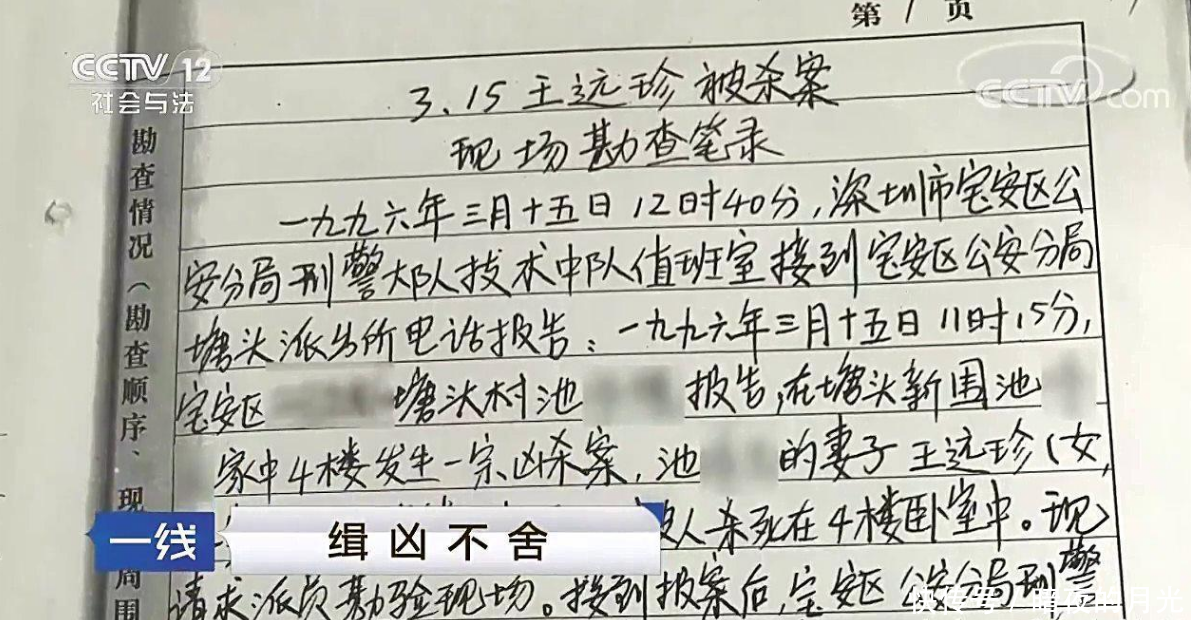 第1页
CCTV 12
社会与法
CCTV.com
3.15王远珍被杀案
现场勘查笔录
勘查情况（勘查顺序、现
周围
一九九六年三月十五日12时40分,深圳市宝安区公
安分局刑警大队技术中队值班室接到宝安区公安分局
塘头派出所电话报告：一九九六年三月十五日11时15分,
宝安区 塘头村池 报告,在塘头新围池
家中4楼发生一宗凶杀案,池 的妻子王远珍(女,
被人杀死在4楼卧室中。现
请求派员勘验现场。接到报案后,宝安区公安分局刑警
一线
缉凶不舍
快传号/暗夜的月光